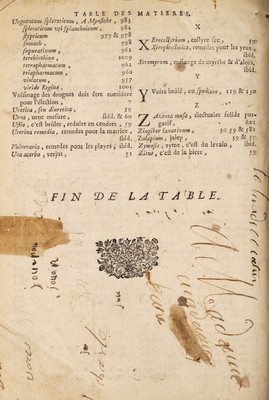 TABLE DES MATIERES.
Unguentum spleneticum, A Mynsicht, 983
spleneticum vel splanchnicum, 982
stypticum 977 & 978
sumach 998
suppurativum, 962
terebinthina, 1009
tetrapharmacum, 962
triapharmacum, 960
violatum, 957
viride Regina, 1005
Voisinage des drogues doit être consideré
pour l'élection,
Uretica, seu diuretica, 57
Urna, une mesure, ibid. & 60
Ustio, c'est brûler, reduire en cendres, 59
Uterina remedia, remedes pour la matrice,
ibid.
Vulneraria, remedes pour les playes, ibid.
Uva acerba, verjus, 51
X
XErocollyrium, collyre sec, 59
Xerophtalmica, remedes pour les yeux,
ibid.
ibid.
Y
YVoire brûlé, ou spodium, 119 & 130
Z
electuaire solide pur-
gatif, 621
Zingiber laxativum, 30. 59 & 581
Zulapium, julep, 39 & 59
Zymosis, zyme, c'est du levain, ibid.
Zitus, c'est de la biere, 59
FIN DE LA TABLE.